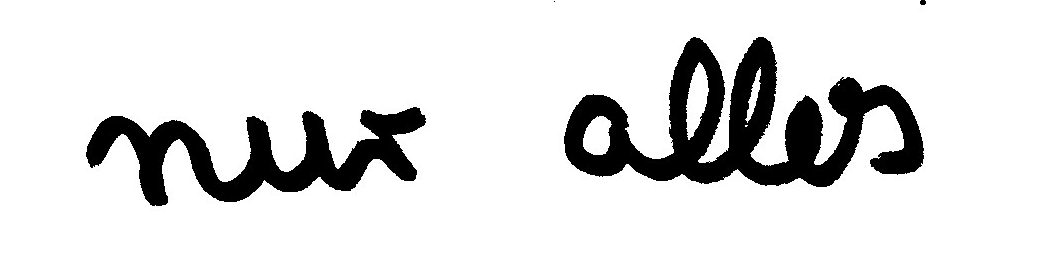 nur alles